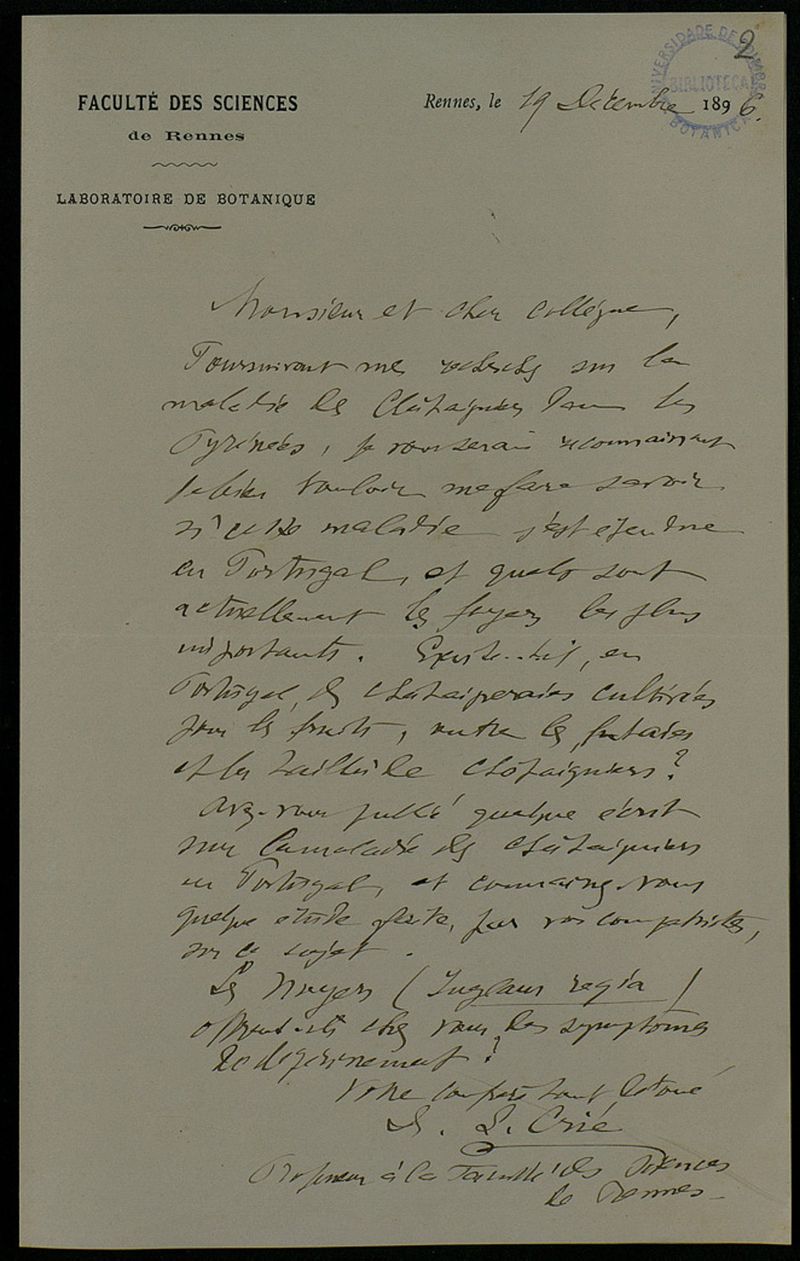 2
UNIVERSIDADE DE COIMBRA
BIBLIOTECA
BOTANICA
FACULTÉ DES SCIENCES
de Rennes
LABORATOIRE DE BOTANIQUE
Rennes, le 19 Décembre 1896.
Monsieur et cher collègue,
Poursuivant mes recherches sur la
maladie des Châtaigniers dans les
Pyrénées, je vous serais reconnaissant
de bien vouloir me faire savoir
si cette maladie s'est étendue
en Portugal, et quels sont
actuellement les foyers les plus
importants. Existe-t-il, en
Portugal, des châtaigneraies cultivées
pour les fruits, outre les futaies
et les taillis de châtaigniers?
Avez-vous publié quelque écrit
sur la maladie des châtaigniers
en Portugal, et connaissez-vous
quelque étude faite, par vos compatriotes,
sur ce sujet.
Les Noyers (Juglans regia)
offrent-ils chez vous des symptômes
de dépérissement?
Votre confrère tout dévoué
L. Crié
Professeur à la Faculté des Sciences
de Rennes